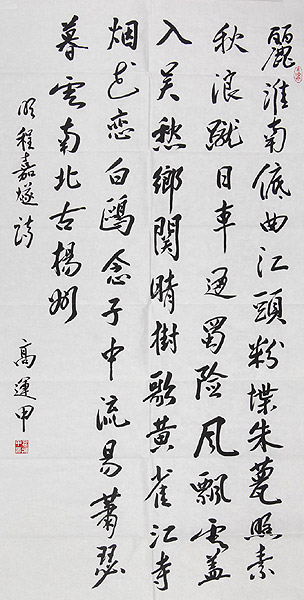 麗淮南曲江頭粉堞朱甍照素
秋浪蹴日車通蜀险風飄雲盖
入吴愁鄉関晴樹歌黄雀江寺
烟花恋白鷗念子中流易萧瑟
暮雲南北古揚州
明程嘉燧詩
高運甲